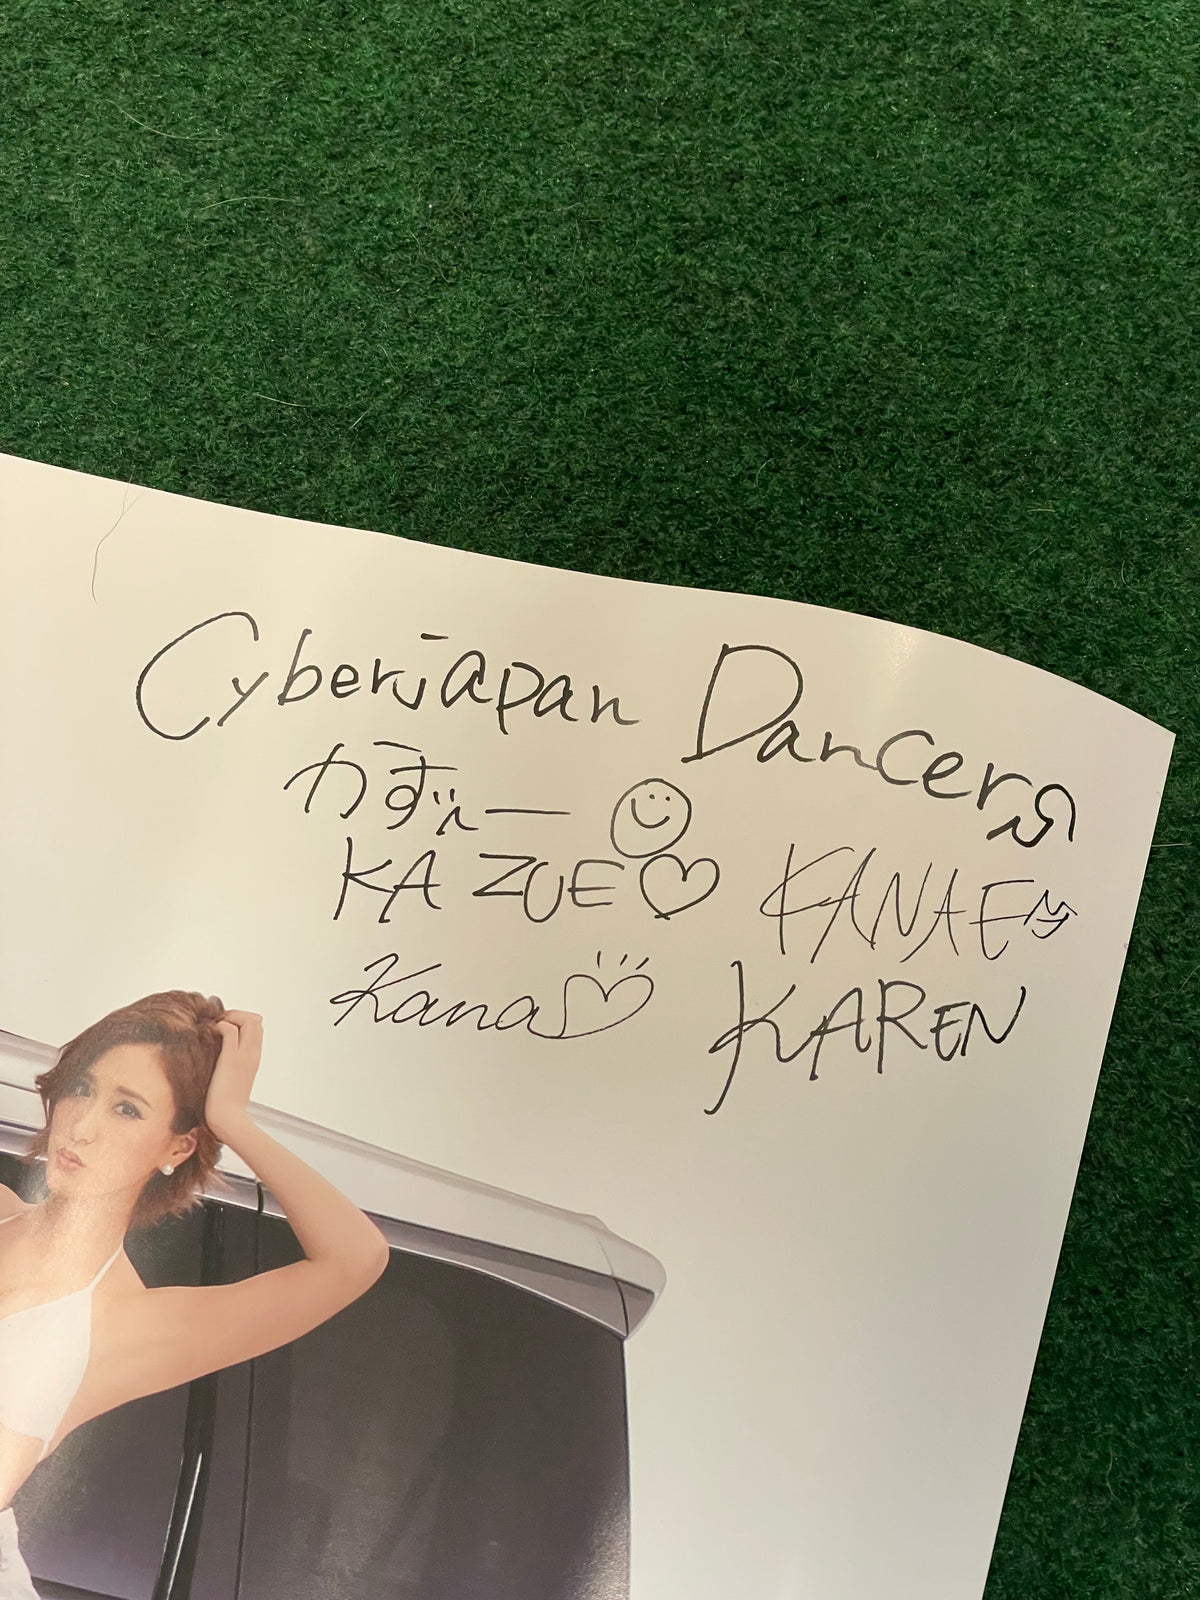 Cyberjapan Dancers
かずえー
KAZUE KANAE
Kana KAREN